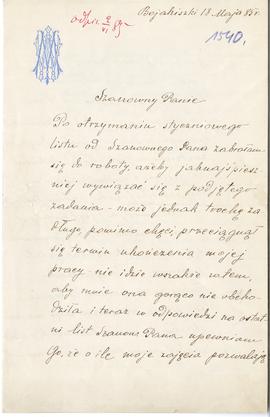 odpis. 2/VI 85
Bojaliszki 18 Maja 85 r.
1540.
Szanowny Panie
Po otrzymaniu styczniowego
listu od Szanownego Pana zabrałem
się do roboty, ażeby jaknajśpiesz
niej wywiązać się z podjętego
zadania - może jednak trochę za
długo, pomimo chęci, przeciągnął
się termin ukończenia mojej
pracy - nie idzie wszakże zatem,
aby mnie ona gorąco nie obcho
dziła i teraz w odpowiedzi na ostat
ni list Szanow. Pana upewniam
Go, że o ile moje zajęcia pozwalają